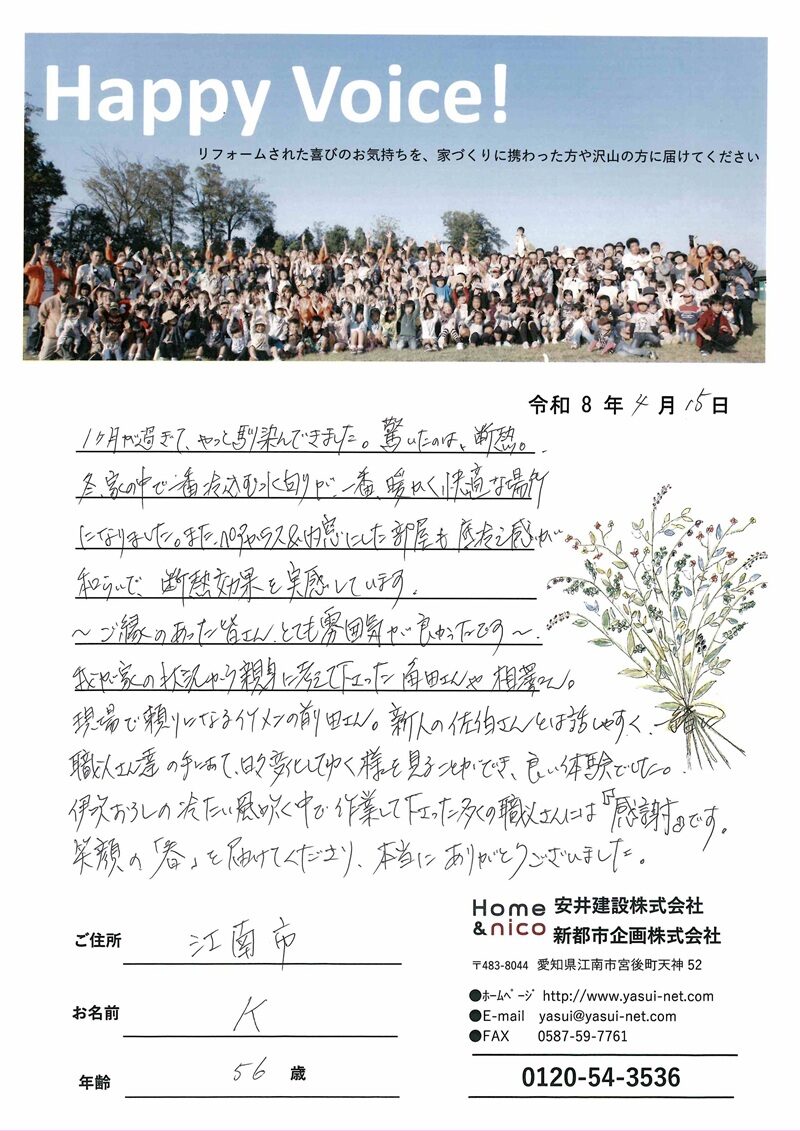 Happy Voice!
リフォームされた喜びのお気持ちを、家づくりに携わった方や沢山の方に届けてください
令和 8 年 4 月 15 日
1ヶ月が過ぎて、やっと馴染んできました。驚いたのは、断熱。
冬、家の中で一番冷込む水回りが、一番、暖かく快適な場所
になりました。また、ペアガラス&内窓にした部屋も底冷え感が
和らいで、断熱効果を実感しています。
～ご縁のあった皆さん、とても雰囲気が良かったです～
我が家の状況から親身に考えて下さった角田さんや相澤さん。
現場で頼りになるイケメンの前田さん。新人の佐伯さんとは話しやすく、一緒に
職人さん達の手にあて、日々変化してゆく様を見ることができ、良い体験でした。
伊吹おろしの冷たい風吹く中で作業して下さった多くの職人さんには『感謝』です。
笑顔の「春」を届けてくださり、本当にありがとうございました。
ご住所 江南市
お名前 K
年齢 56 歳
Home &nico
安井建設株式会社
新都市企画株式会社
〒483-8044 愛知県江南市宮後町天神 52
●ﾎｰﾑﾍﾟｰｼﾞ http://www.yasui-net.com
●E-mail yasui@yasui-net.com
●FAX 0587-59-7761
0120-54-3536